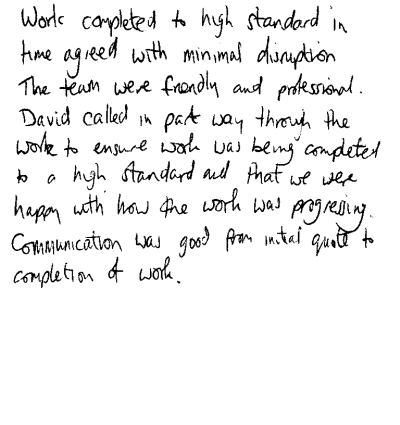 Work completed to high standard in
time agreed with minimal disruption
The team were friendly and professional.
David called in part way through the
work to ensure work was being completed
to a high standard and that we were
happy with how the work was progressing.
Communication was good from initial quote to
completion of work.